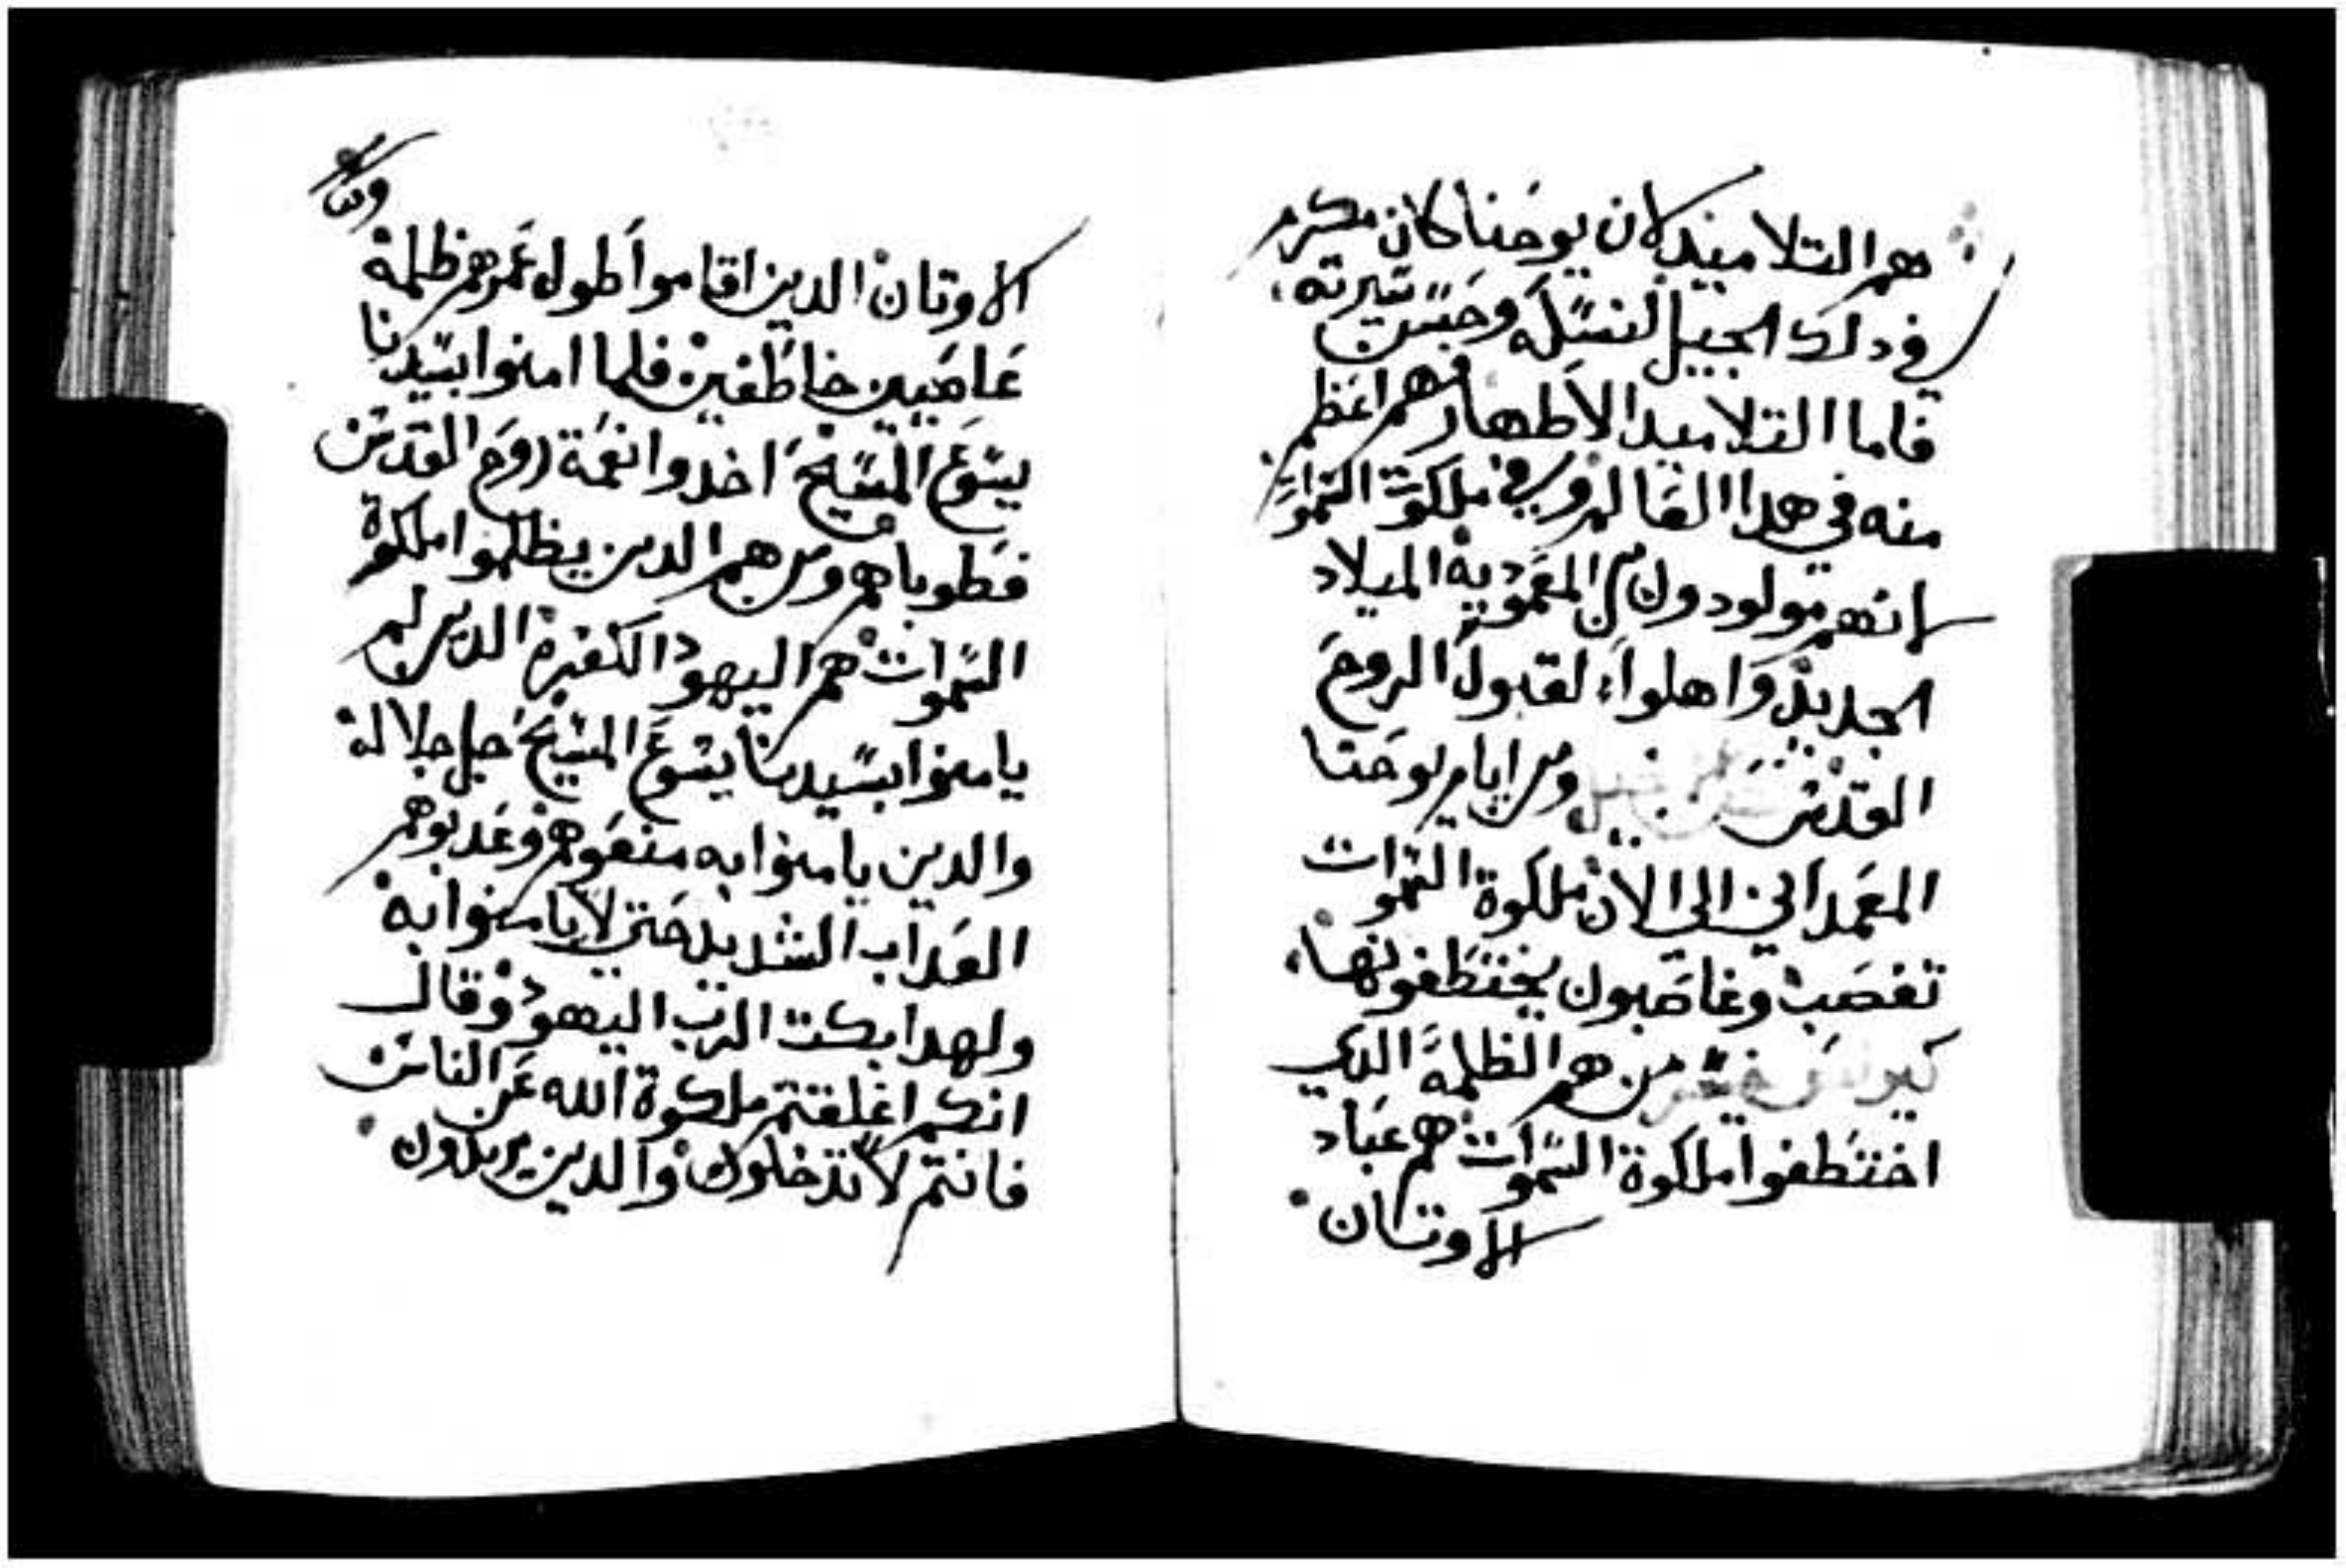 هم التلاميذ لان يوحنا كان مكرم
في دلك الجيل لنسكه وحسن سيرته
فاما التلاميد الاطهار فهم اعظم
منه في هدا العالم وفي ملكوت السموات
لانهم مولودون من المعمودية الميلاد
الجديد واهلوا لقبول الروح
القدس ومن ايام يوحنا
المعمداني الي الان ملكوة السموات
تغصب وغاصبون يختطفونها
من هم الظلمة الدي
اختطفوا ملكوة السموات هم عباد
الاوتان
الاوتان الدين اقاموا طول عمرهم ظلمة
غاصبين خاطفين فلما امنوا بسيدنا
يسوع المسيح اخدوا نعمة روح القدس
فطوباهم ومن هم الدين يظلموا ملكوة
السموات هم اليهود الكفرة الدين لم
يامنوا بسيدنا يسوع المسيح جل جلالة
والدين يامنوا به منعوهم وعدبوهم
العداب الشديد حتي لا يامنوا به
ولهدا بكت الرب اليهود وقال
انكم اغلقتم ملكوة الله عن الناس
فانتم لا تدخلون والدين يريدون